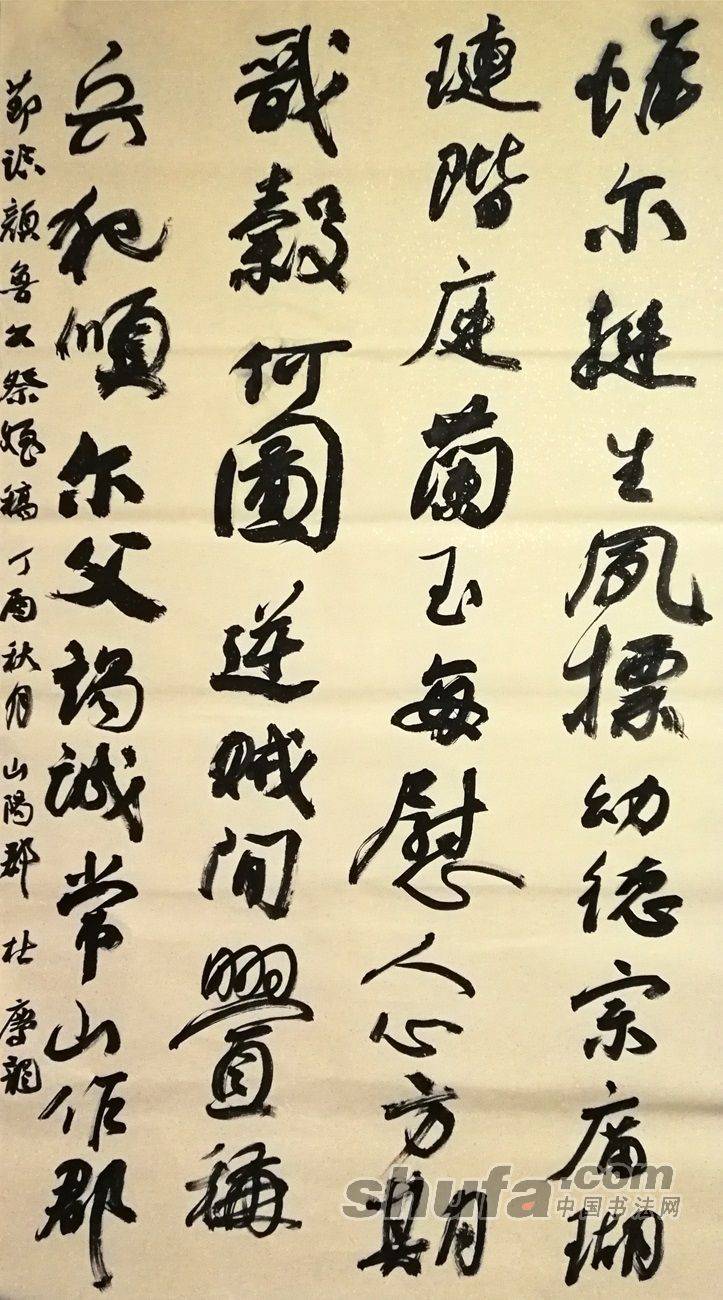 惟尔挺生夙标幼德宗庙瑚
琏阶庭兰玉每慰人心方期
戬穀何圖逆贼间釁稱
兵犯順尔父竭诚常山作郡
节临颜鲁公祭侄稿丁酉秋月山阳郡杜
shufa.com
中国书法网